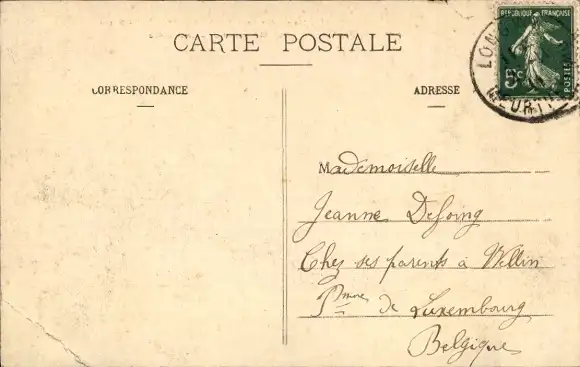 CARTE POSTALE
CORRESPONDANCE
ADRESSE
RÉPUBLIQUE FRANÇAISE
5c
POSTES
Mademoiselle
Jeanne Defoing
Chez ses parents à Wellin
Pince de Luxembourg
Belgique